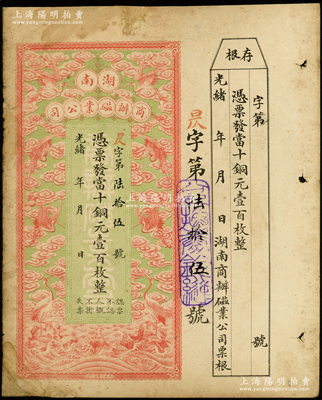 上海陽明拍賣
WWW.YMPM.COM
湖南
商辦磁業公司
昃字第陸拾伍號
憑票發當十銅元壹百枚整
光緒 年 月 日
認票不認人概不掛失票
昃字第陸拾伍號
存根
字第 號
憑票發當十銅元壹百枚整
光緒 年 月 日 湖南商辦磁業公司票根
上海陽明拍賣